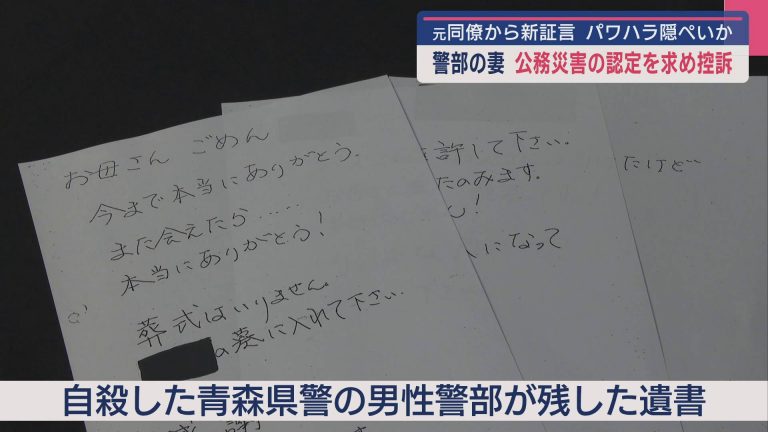 元同僚から新証言 パワハラ隠ぺいか
警部の妻 公務災害の認定を求め控訴
お母さん ごめん
今まで本当にありがとう.
また会えたら……
本当にありがとう!
葬式はいりません。
の墓に入れて下さい.
許して下さい.
たのみます.
!
になって
たけど…
自殺した青森県警の男性警部が残した遺書